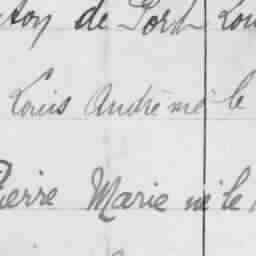 de Port Lou
Louis André né le
Pierre Marie né le